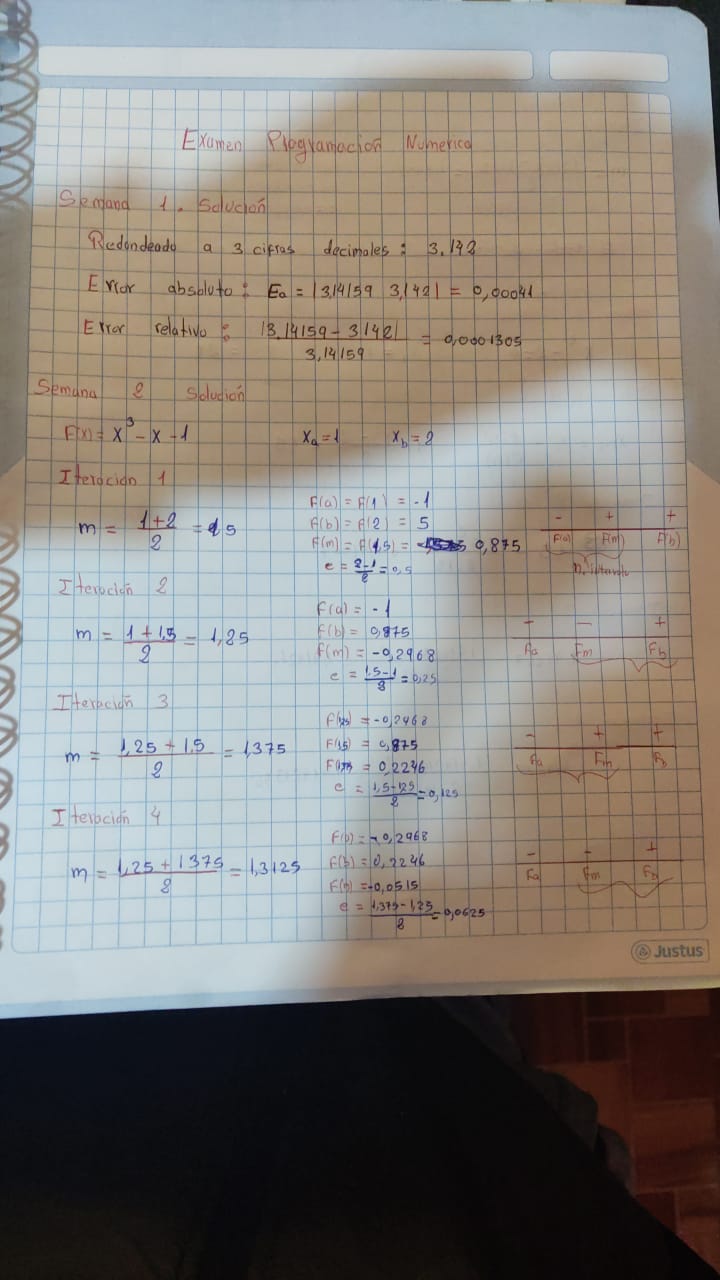 Examen Programación Numerica
Semana 1. Solución
Redondeado a 3 cifras decimales: 3.142
Error absoluto: Ea = |3,14159 3,142| = 0,00041
Error relativo: |3.14159 - 3,142| / 3,14159 = 0,0001305
Semana 2 Solución
F(x) = x³ - x - 1 Xa = 1 Xb = 2
Iteración 1
m = (1+2)/2 = 1,5
F(a) = F(1) = -1
F(b) = F(2) = 5
F(m) = F(1,5) = 0,875
e = (2-1)/2 = 0,5
- + +
F(a) F(m) F(b)
Iteración 2
m = (1+1,5)/2 = 1,25
F(a) = -1
F(b) = 0,875
F(m) = -0,2968
e = (1,5-1)/2 = 0,25
- - +
Fa Fm Fb
Iteración 3
m = (1,25 + 1,5)/2 = 1,375
F(1,25) = -0,2968
F(1,5) = 0,875
F(1,375) = 0,2246
e = (1,5-1,25)/2 = 0,125
- + +
Fa Fm Fb
Iteración 4
m = (1,25 + 1,375)/2 = 1,3125
F(a) = -0,2968
F(b) = 0,2246
= -0,0515
e = (1,375-1,25)/2 = 0,0625
- - +
Fa Fm Fb
Justus